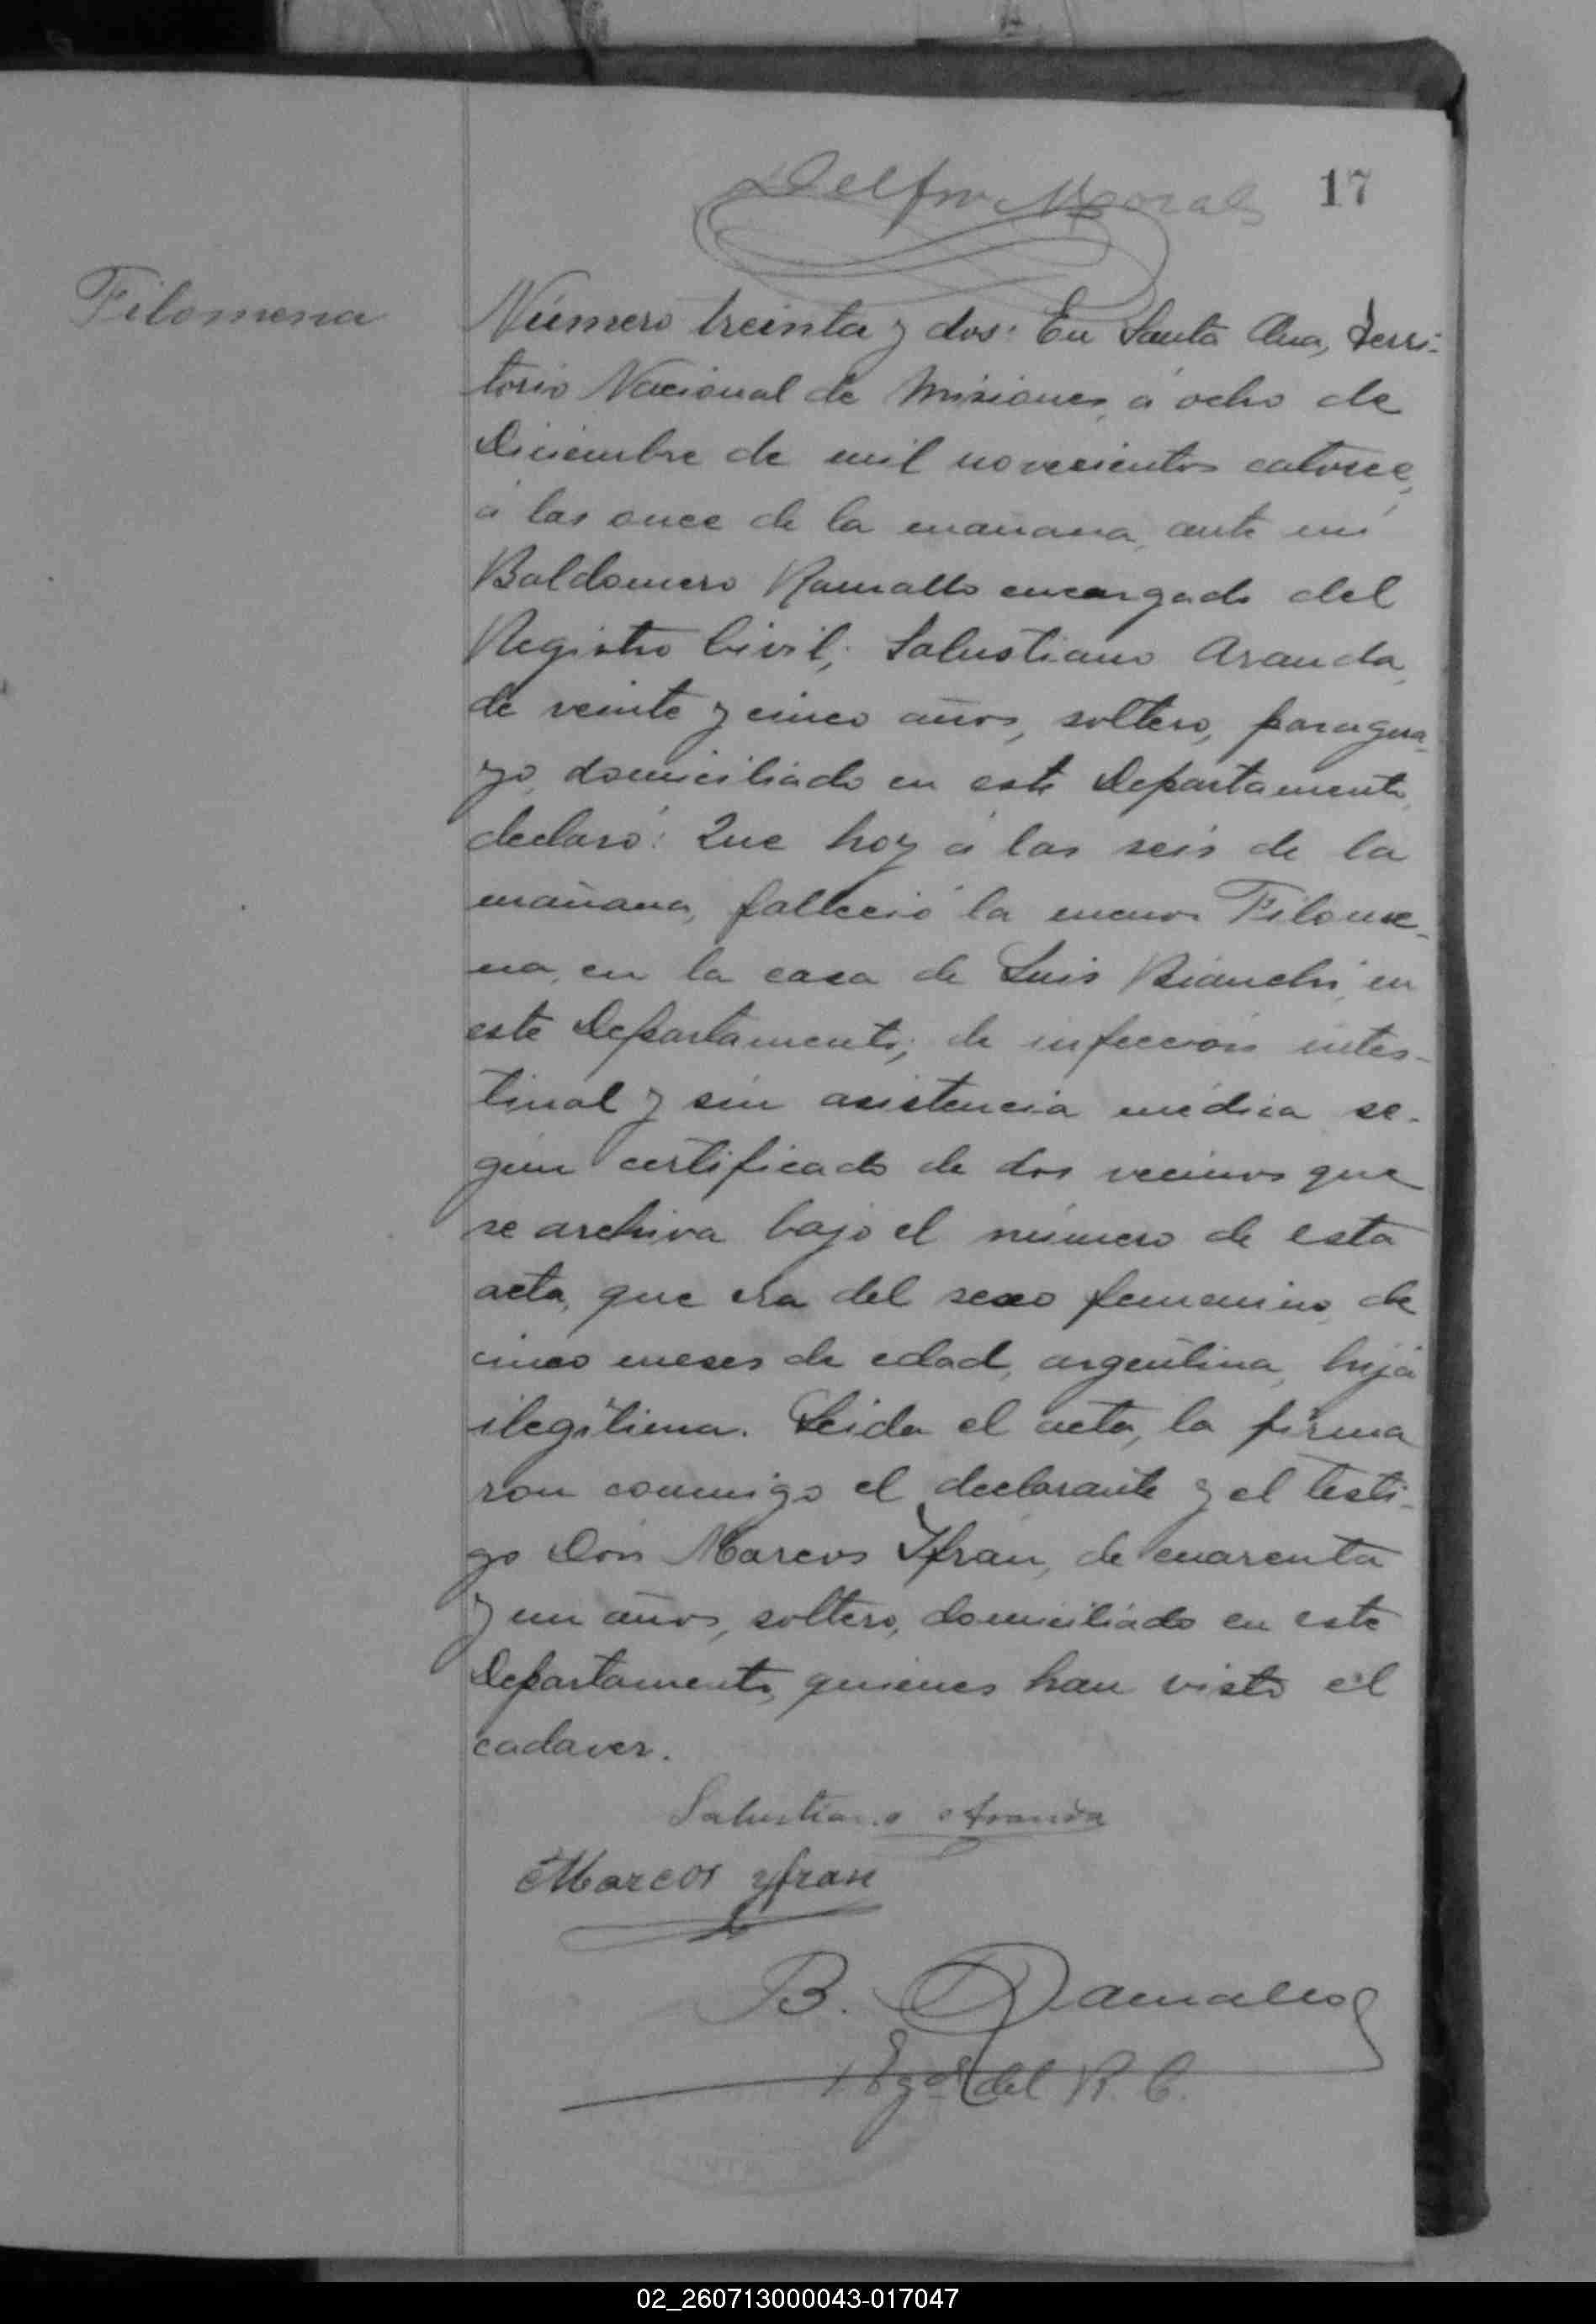 Delfin Morales
17
Filomena
Número treinta y dos: En Santa Ana, Terri-
torio Nacional de Misiones, á ocho de
Diciembre de mil novecientos catorce,
á las once de la mañana, ante mí
Baldomero Ramallo encargado del
Registro Civil; Salustiano Aranda,
de veinte y cinco años, soltero, paragua-
yo, domiciliado en este Departamento,
declaró: Que hoy á las seis de la
mañana, falleció la menor Filome-
na, en la casa de Luis Bianchi, en
este Departamento; de infeccion intes-
tinal y sin asistencia médica se-
gún certificado de dos vecinos que
se archiva bajo el número de esta
acta, que era del sexo femenino, de
cinco meses de edad, argentina, hija
ilegítima. Leida el acta, la firma
ron conmigo el declarante y el testi-
go Don Marcos Yfrán, de cuarenta
y un años, soltero, domiciliado en este
Departamento, quienes han visto el
cadaver.
Salustiano Aranda
Marcos yfran
B. Ramallo
Egdo del R. C.
02_260713000043-017047